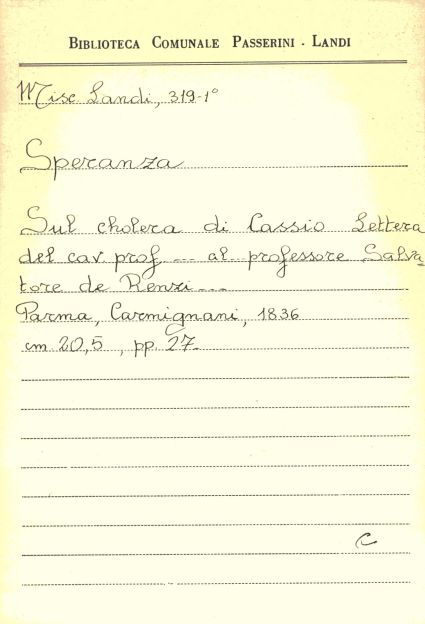 BIBLIOTECA COMUNALE PASSERINI - LANDI
Misc Landi, 319-1°
Speranza
Sul cholera di Cassio Lettera
del cav prof --- al professore Salva-
tore de Renzi---
Parma, Carmignani, 1836
cm 20,5 , pp. 27-
C